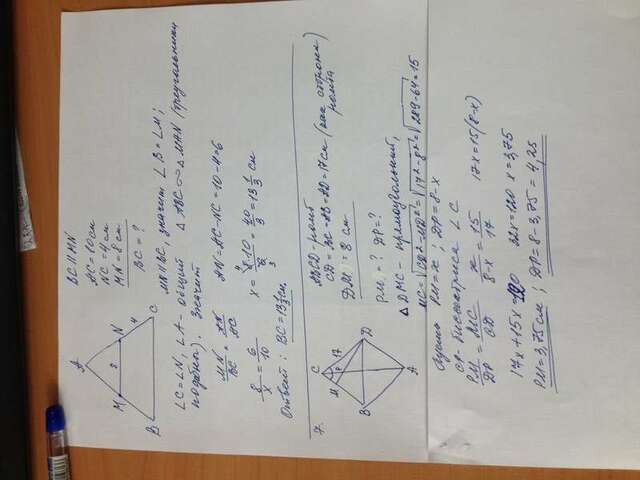 BC||MN
AC = 10 см
NC = 4 см
MN = 8 см
BC = ?
A
M
N
8
4
B
C
MN||BC, значит ∠B = ∠M;
∠C = ∠N, ∠A - общий △ABC ∾ △MAN (треугольники
подобны). Значит
MN/BC = AN/AC AN = AC - NC = 10 - 4 = 6
8/x = 6/10 x = 8·10/6 = 40/3 = 13 1/3 см
Ответ: BC = 13 1/3 см
7.
C
M
P
17
8
B
D
A
ABCD - ромб
CD = BC = AB = AD = 17 см (как стороны
ромба
DM = 8 см
PM - ? DP = ?
△DMC - прямоугольный,
MC = √CD² - MD² = √17² - 8² = √289 - 64 = 15
PM = x; DP = 8 - x
CP биссектриса ∠C
PM/DP = MC/CD x/8-x = 15/17 17x = 15(8-x)
17x + 15x = 120 32x = 120 x = 3,75
PM = 3,75 см; DP = 8 - 3,75 = 4,25